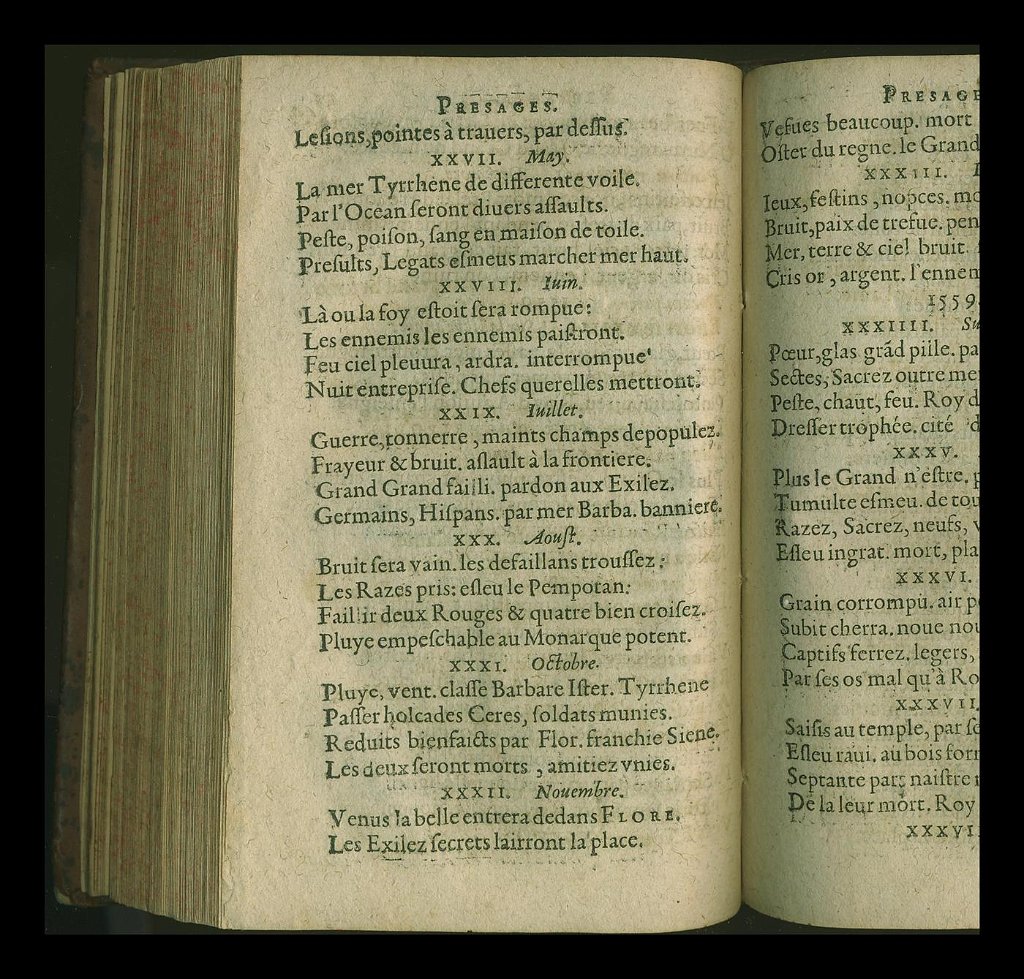 PRESAGES.
Leſions, pointes à trauers, par deſſus.
XXVII. May.
La mer Tyrrhene de differente voile.
Par l'Ocean ſeront diuers aſſaults.
Peſte, poiſon, ſang en maiſon de toile.
Preſults, Legats eſmeus marcher mer haut.
XXVIII. Iuin.
Là ou la foy eſtoit ſera rompue:
Les ennemis les ennemis paiſtront.
Feu ciel pleuura, ardra. interrompue'
Nuit entrepriſe. Chefs querelles mettront.
XXIX. Iuillet.
Guerre, tonnerre, maints champs depopulez.
Frayeur & bruit. aſſault à la frontiere.
Grand Grand failli. pardon aux Exilez.
Germains, Hiſpans. par mer Barba. banniere.
XXX. Aouſt.
Bruit ſera vain. les defaillans trouſſez:
Les Razes pris: eſleu le Pempotan:
Faillir deux Rouges & quatre bien croiſez.
Pluye empeſchable au Monarque potent.
XXXI. Octobre.
Pluye, vent. claſſe Barbare Iſter. Tyrrhene
Paſſer holcades Ceres, ſoldats munies.
Reduits bienfaicts par Flor. franchie Siene.
Les deux ſeront morts, amitiez vnies.
XXXII. Nouembre.
Venus la belle entrera dedans FLORE.
Les Exilez ſecrets lairront la place.
PRESAGE
Vefues beaucoup. mort
Oſter du regne. le Grand
XXXIII.
Ieux, feſtins, nopces. mo
Bruit, paix de trefue. pen
Mer, terre & ciel bruit.
Cris or, argent. l'ennem
1559.
XXXIIII. Su
Pœur, glas grãd pille. pa
Sectes, Sacrez outre me
Peſte, chaut, feu. Roy d
Dreſſer trophée. cité d
XXXV.
Plus le Grand n'eſtre. p
Tumulte eſmeu. de tou
Razez, Sacrez, neufs, v
Eſleu ingrat. mort, pla
XXXVI.
Grain corrompu. air p
Subit cherra. noue nou
Captifs ferrez. legers,
Par ſes os mal qu'à Ro
XXXVII
Saiſis au temple, par ſe
Eſleu raui. au bois for
Septante pars naiſtre
De la leur mort. Roy
XXXVI